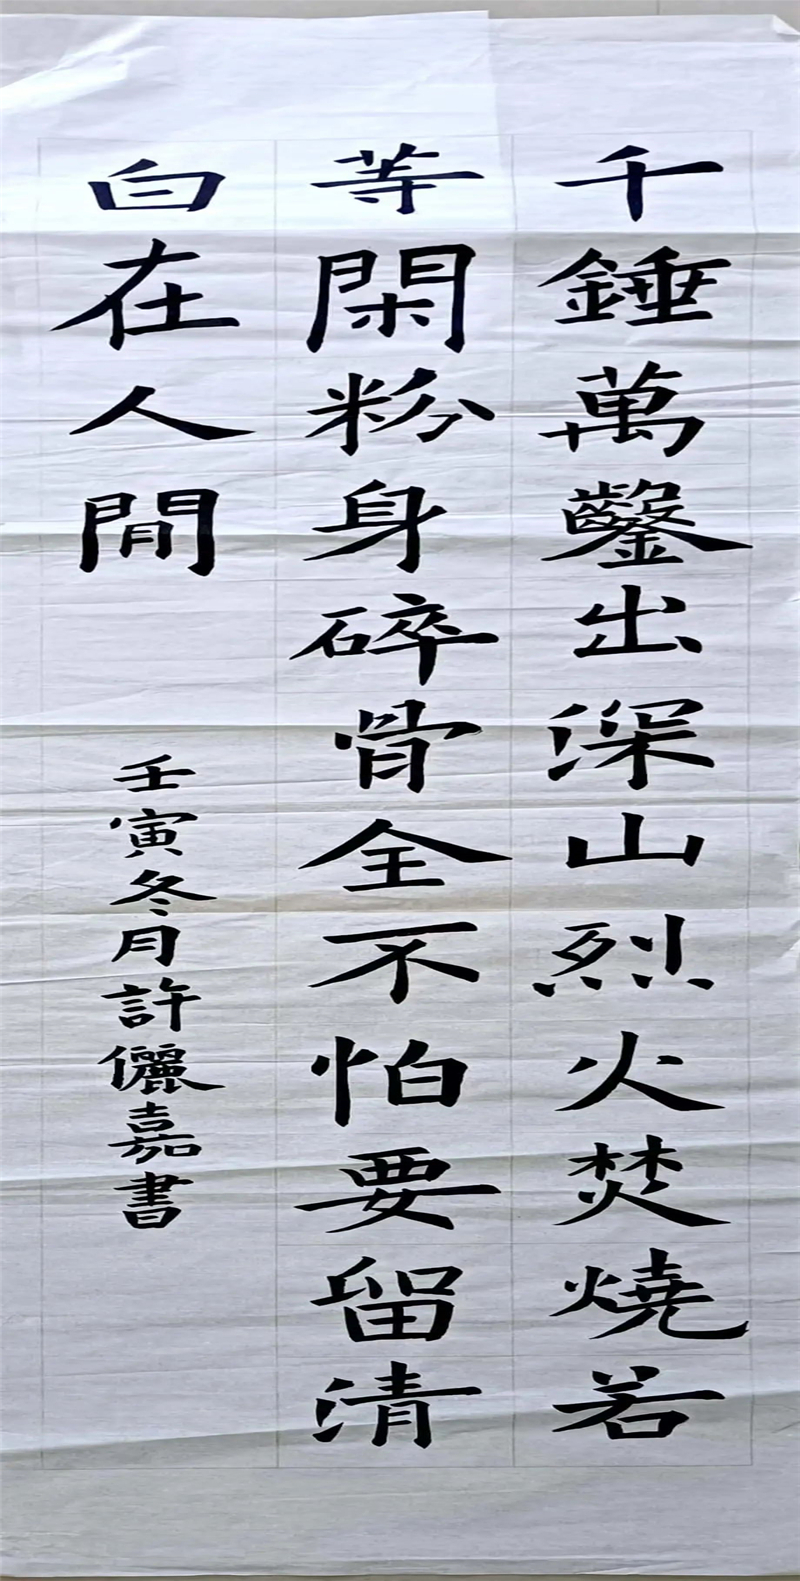 千錘萬鑿出深山烈火焚燒若
等閑粉身碎骨全不怕要留清
白在人間
壬寅冬月許儷嘉書